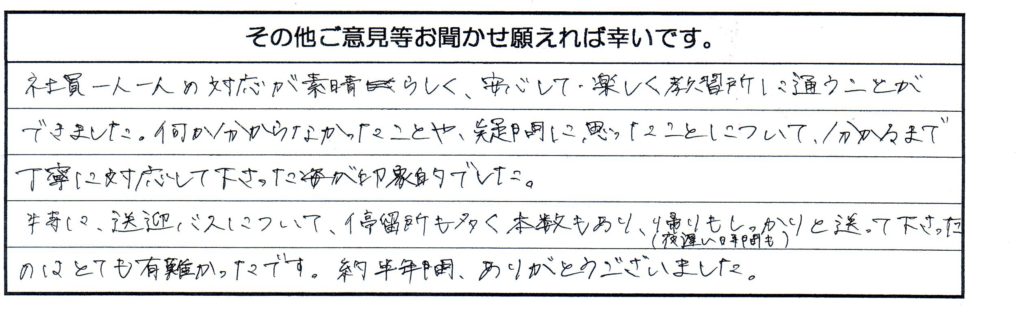 その他ご意見等お聞かせ願えれば幸いです。
社員一人一人の対応が素晴らしく、安心して・楽しく教習所に通うことが
できました。何か分からなかったことや、疑問に思ったことについて、分かるまで
丁寧に対応して下さった事が印象的でした。
特に、送迎バスについて、停留所も多く本数もあり、帰りもしっかりと送って下さった
(夜遅い時間も)
のはとても有難かったです。約半年間、ありがとうございました。